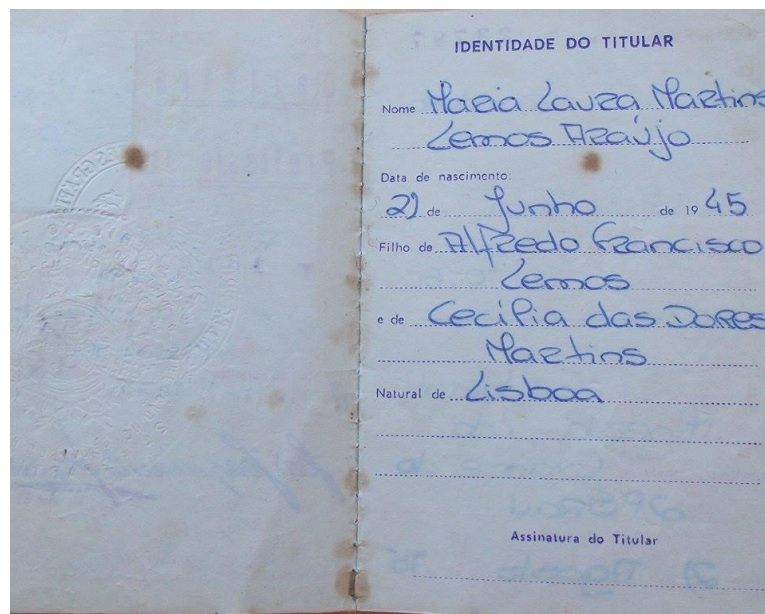 IDENTIDADE DO TITULAR
Nome Maria Laura Martins
Lemos Araújo
Data de nascimento:
21 de Junho de 1945
Filho de Alfredo Francisco
Lemos
e de Cecília das Dores
Martins
Natural de Lisboa
Assinatura do Titular